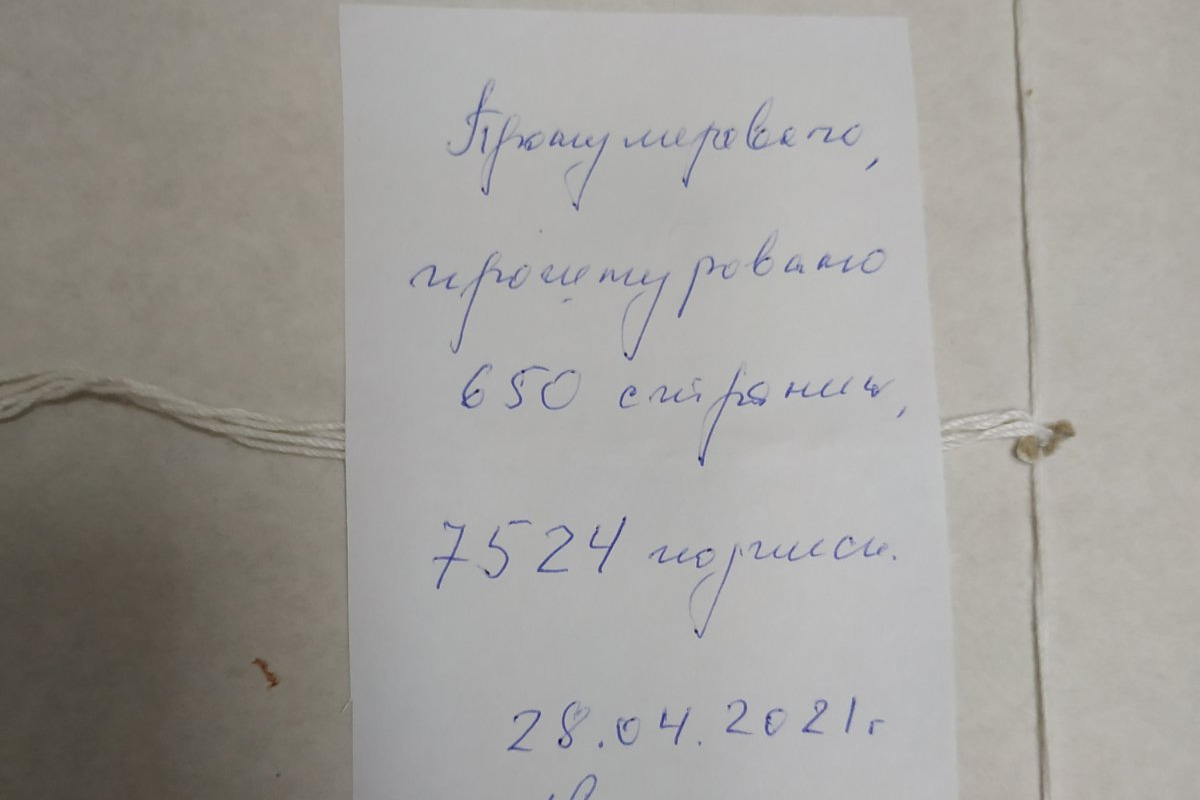 Пронумеровано,
прошнуровано
650 страниц,
7524 подписи.
28.04.2021г